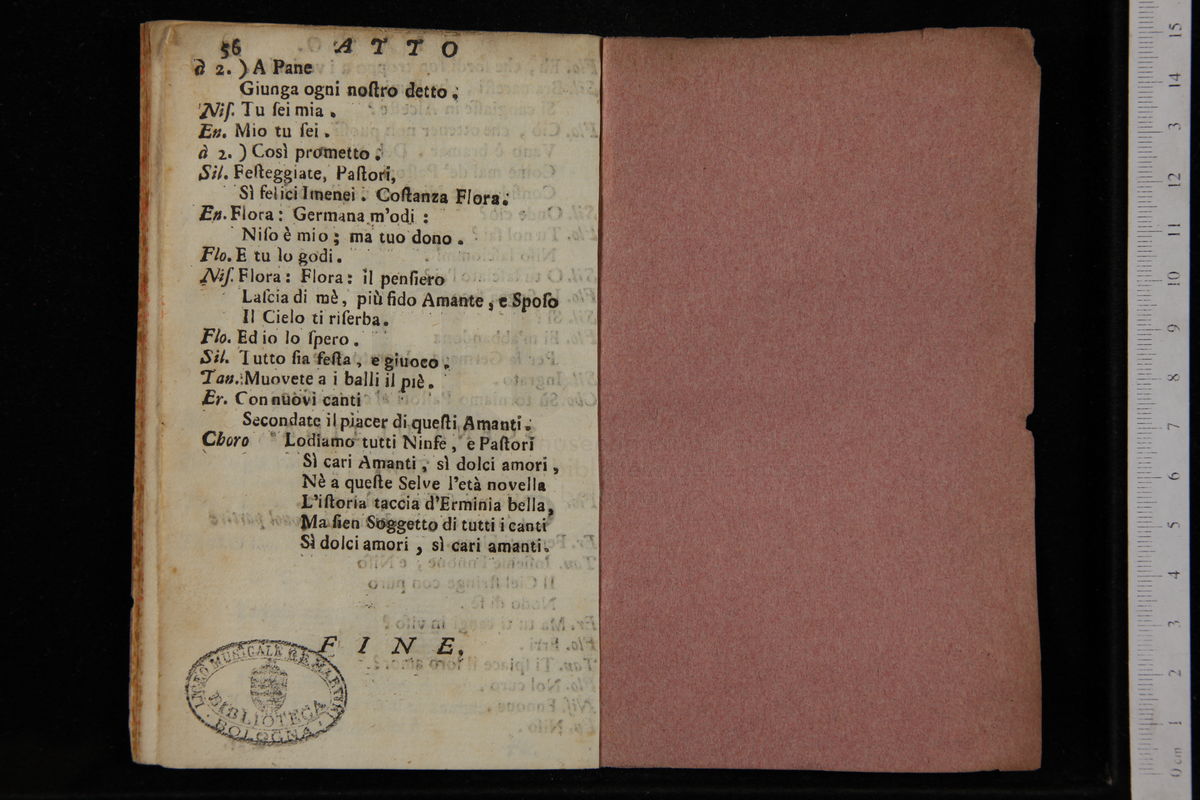 56 ATTO
à 2. ) A Pane
Giunga ogni noſtro detto.
Niſ. Tu ſei mia.
En. Mio tu ſei.
à 2. ) Così prometto.
Sil. Feſteggiate, Paſtori,
Sì felici Imenei. Coſtanza Flora.
En. Flora: Germana m'odi:
Niſo è mio; ma tuo dono.
Flo. E tu lo godi.
Niſ. Flora: Flora: il penſiero
Laſcia di mè, più fido Amante, e Spoſo
Il Cielo ti riſerba.
Flo. Ed io lo ſpero.
Sil. Tutto ſia feſta, e giuoco.
Tan. Muovete a i balli il piè.
Er. Con nuovi canti
Secondate il piacer di queſti Amanti.
Choro Lodiamo tutti Ninfe, e Paſtori
Sì cari Amanti, sì dolci amori,
Nè a queſte Selve l'età novella
L'iſtoria taccia d'Erminia bella,
Ma ſien Soggetto di tutti i canti
Sì dolci amori, sì cari amanti.
FINE.
LICEO MUSICALE G. B. MARTINI
BIBLIOTECA
BOLOGNA
0 cm 1 2 3 4 5 6 7 8 9 10 11 12 13 14 15